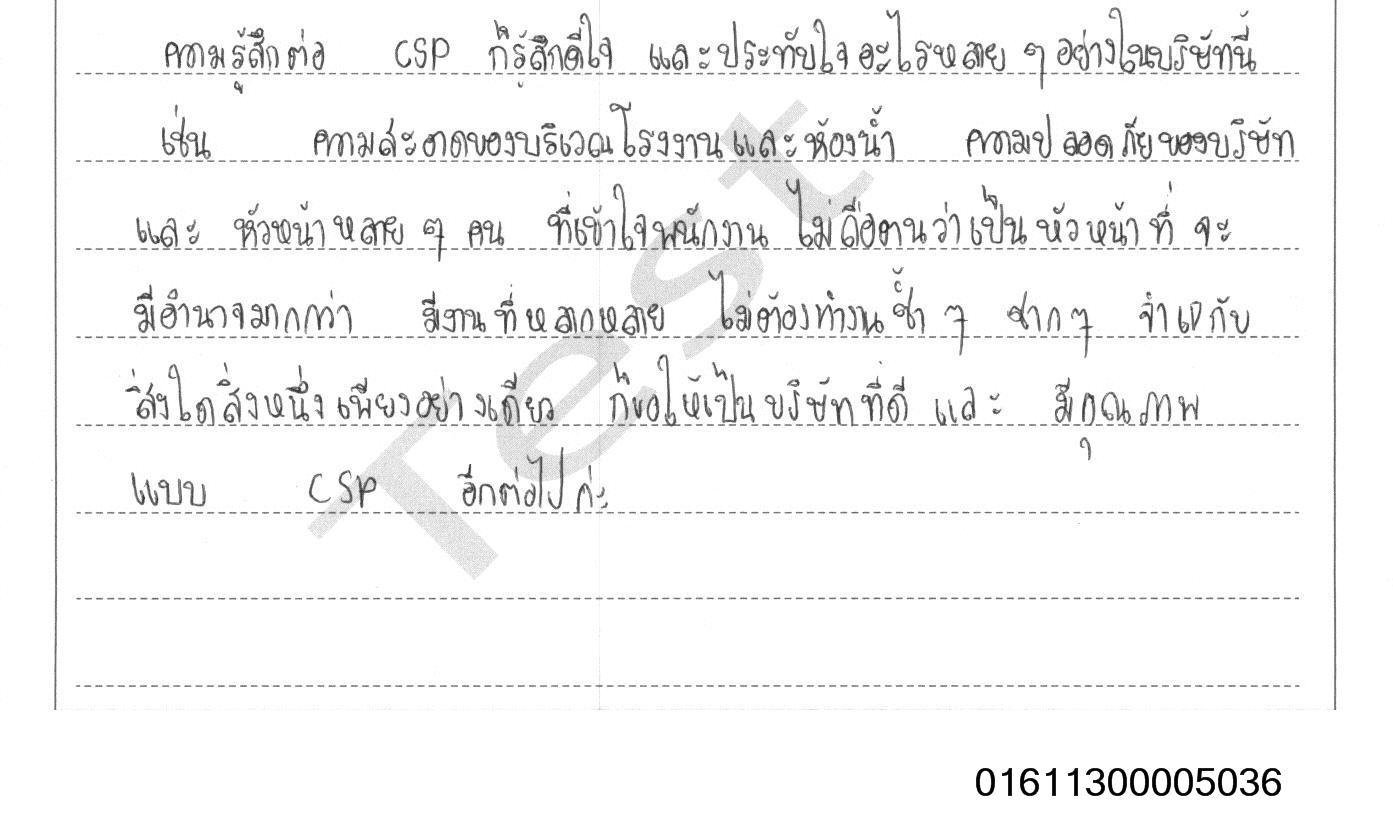 ความรู้สึกต่อ CSP ก็รู้สึกดีใจ และประทับใจอะไรหลาย ๆ อย่างในบริษัทนี้
เช่น ความสะอาดของบริเวณโรงงานและห้องน้ำ ความปลอดภัยของบริษัท
และ หัวหน้าหลาย ๆ คน ที่เข้าใจพนักงาน ไม่ถือตนว่าเป็นหัวหน้าที่ จะ
มีอำนาจมากกว่า มีงานที่หลากหลาย ไม่ต้องทำงานซ้ำ ๆ ซาก ๆ จำเจกับ
สิ่งใดสิ่งหนึ่งเพียงอย่างเดียว ก็ขอให้เป็นบริษัทที่ดี และ มีคุณภาพ
แบบ CSP อีกต่อไปค่ะ
Test
01611300005036